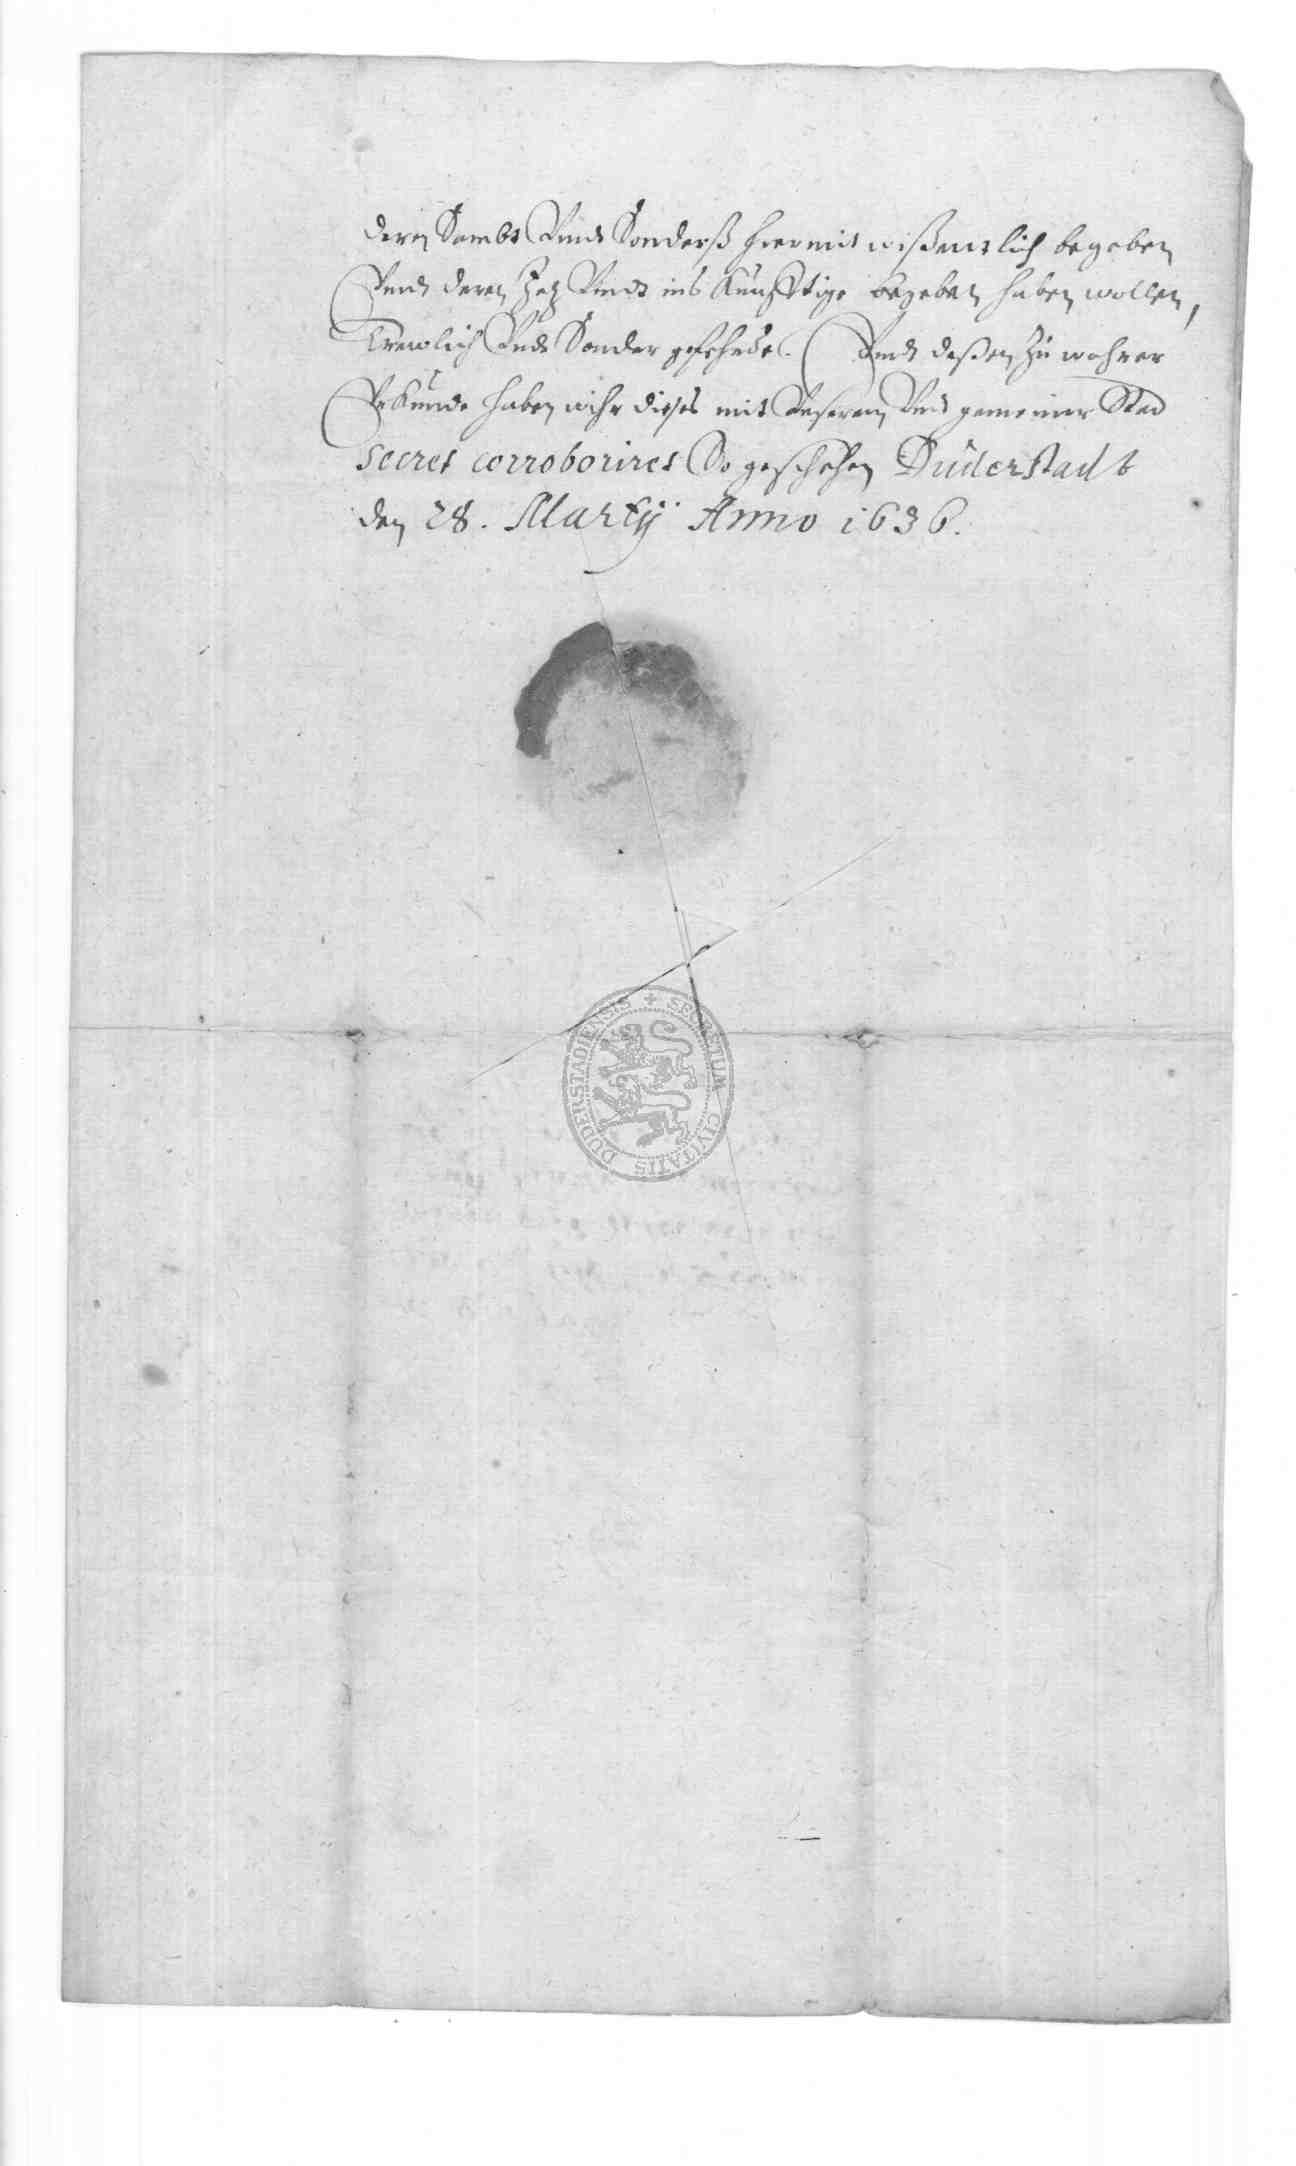 deren Sambt Vnndt Sonderß hiermit wißentlich begeben
Vnndt deren Jtz Vnndt ins Künfftige begeben haben wollen,
Trewlich Vndt Sonder gefehrde. Vnndt deßen zu wahrer
Vrkunde haben wihr dieses mit Vnserem Vnd gemeiner Stad
Secret corroboriret So geschehen Düderstadt
den 28. Martij Anno 1636.
SECRETUM CIVITATIS DUDERSTADIENSIS